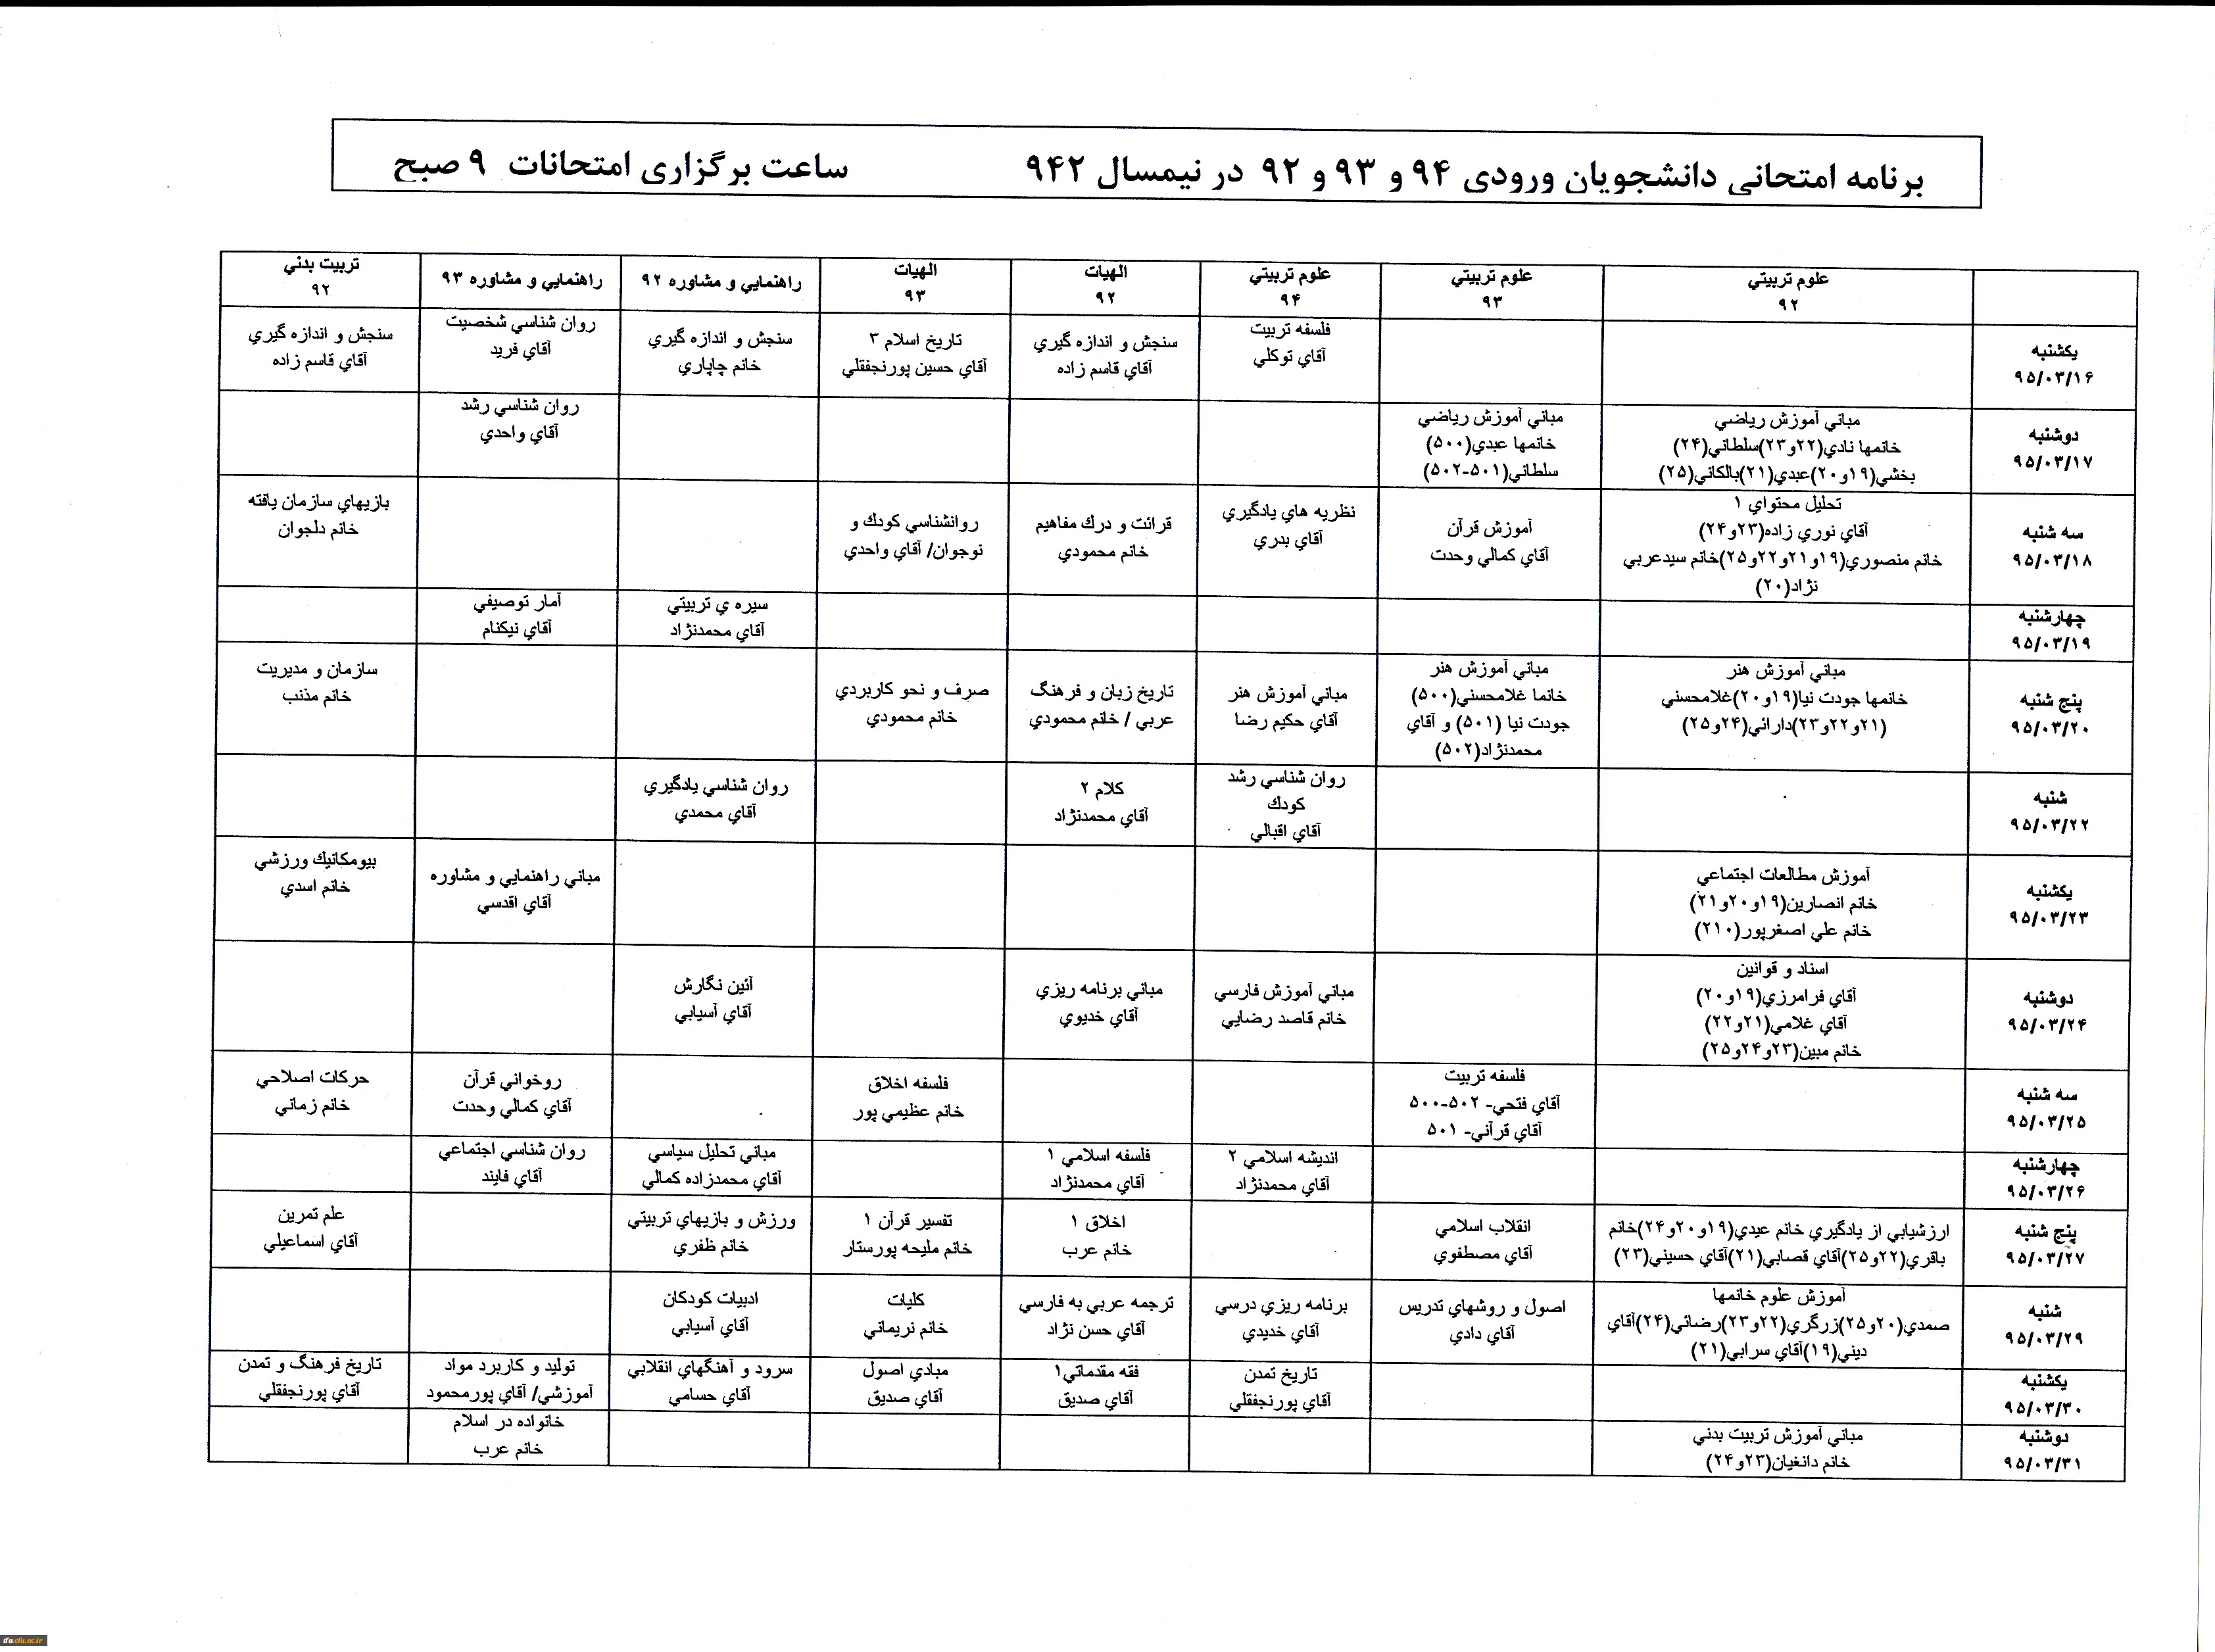 برنامه امتحاني دانشجويان ورودي ۹۴ و ۹۳ و ۹۲ در نيمسال ۹۴۲ ساعت برگزاري امتحانات ۹ صبح
علوم تربيتي
۹۲
علوم تربيتي
۹۳
علوم تربيتي
۹۴
الهيات
۹۲
الهيات
۹۳
راهنمايي و مشاوره ۹۲
راهنمايي و مشاوره ۹۳
تربيت بدني
۹۲
يكشنبه
۹۵/۰۳/۱۶
فلسفه تربيت
آقاي توكلي
سنجش و اندازه گيري
آقاي قاسم زاده
تاريخ اسلام ۳
آقاي حسين پورنجفقلي
سنجش و اندازه گيري
خانم چاپاري
روان شناسي شخصيت
آقاي فريد
سنجش و اندازه گيري
آقاي قاسم زاده
دوشنبه
۹۵/۰۳/۱۷
مباني آموزش رياضي
خانمها نادي(۲۲و۲۳)سلطاني(۲۴)
بخشي(۱۹و۲۰)عبدي(۲۱)بالكاني(۲۵)
مباني آموزش رياضي
خانمها عبدي(۵۰۰)
سلطاني(۵۰۱-۵۰۲)
روان شناسي رشد
آقاي واحدي
سه شنبه
۹۵/۰۳/۱۸
تحليل محتواي ۱
آقاي نوري زاده(۲۳و۲۴)
خانم منصوري(۱۹و۲۱و۲۲و۲۵)خانم سيدعربي
نژاد(۲۰)
آموزش قرآن
آقاي كمالي وحدت
نظريه هاي يادگيري
آقاي بدري
قرائت و درك مفاهيم
خانم محمودي
روانشناسي كودك و
نوجوان/ آقاي واحدي
بازيهاي سازمان يافته
خانم دلجوان
چهارشنبه
۹۵/۰۳/۱۹
سيره ي تربيتي
آقاي محمدنژاد
آمار توصيفي
آقاي نيكنام
پنج شنبه
۹۵/۰۳/۲۰
مباني آموزش هنر
خانمها جودت نيا(۱۹و۲۰)غلامحسني
(۲۱و۲۲و۲۳)دارائي(۲۴و۲۵)
مباني آموزش هنر
خانما غلامحسني(۵۰۰)
جودت نيا (۵۰۱) و آقاي
محمدنژاد(۵۰۲)
مباني آموزش هنر
آقاي حكيم رضا
تاريخ زبان و فرهنگ
عربي / خانم محمودي
صرف و نحو كاربردي
خانم محمودي
سازمان و مديريت
خانم مذنب
شنبه
۹۵/۰۳/۲۲
روان شناسي رشد
كودك
آقاي اقبالي
كلام ۲
آقاي محمدنژاد
روان شناسي يادگيري
آقاي محمدي
يكشنبه
۹۵/۰۳/۲۳
آموزش مطالعات اجتماعي
خانم انصارين(۱۹و۲۰و۲۱)
خانم علي اصغرپور(۲۱۰)
مباني راهنمايي و مشاوره
آقاي اقدسي
بيومكانيك ورزشي
خانم اسدي
دوشنبه
۹۵/۰۳/۲۴
اسناد و قوانين
آقاي فرامرزي(۱۹و۲۰)
آقاي غلامي(۲۱و۲۲)
خانم مبين(۲۳و۲۴و۲۵)
مباني آموزش فارسي
خانم قاصد رضايي
مباني برنامه ريزي
آقاي خديوي
آئين نگارش
آقاي آسيابي
سه شنبه
۹۵/۰۳/۲۵
فلسفه تربيت
آقاي فتحي- ۵۰۲-۵۰۰
آقاي قرآني- ۵۰۱
فلسفه اخلاق
خانم عظيمي پور
روخواني قرآن
آقاي كمالي وحدت
حركات اصلاحي
خانم زماني
چهارشنبه
۹۵/۰۳/۲۶
انديشه اسلامي ۲
آقاي محمدنژاد
فلسفه اسلامي ۱
آقاي محمدنژاد
مباني تحليل سياسي
آقاي محمدزاده كمالي
روان شناسي اجتماعي
آقاي فايند
پنج شنبه
۹۵/۰۳/۲۷
ارزشيابي از يادگيري خانم عيدي(۱۹و۲۰و۲۴)خانم
باقري(۲۲و۲۵)آقاي قصابي(۲۱)آقاي حسيني(۲۳)
انقلاب اسلامي
آقاي مصطفوي
اخلاق ۱
خانم عرب
تفسير قرآن ۱
خانم مليحه پورستار
ورزش و بازيهاي تربيتي
خانم ظفري
علم تمرين
آقاي اسماعيلي
شنبه
۹۵/۰۳/۲۹
آموزش علوم خانمها
صمدي(۲۰و۲۵)زرگري(۲۲و۲۳)رضائي(۲۴)آقاي
ديني(۱۹)آقاي سرابي(۲۱)
اصول و روشهاي تدريس
آقاي دادي
برنامه ريزي درسي
آقاي خديدي
ترجمه عربي به فارسي
آقاي حسن نژاد
كليات
خانم نريماني
ادبيات كودكان
آقاي آسيابي
يكشنبه
۹۵/۰۳/۳۰
تاريخ تمدن
آقاي پورنجفقلي
فقه مقدماتي۱
آقاي صديق
مبادي اصول
آقاي صديق
سرود و آهنگهاي انقلابي
آقاي حسامي
توليد و كاربرد مواد
آموزشي/ آقاي پورمحمود
تاريخ فرهنگ و تمدن
آقاي پورنجفقلي
دوشنبه
۹۵/۰۳/۳۱
مباني آموزش تربيت بدني
خانم دانغيان(۲۳و۲۴)
خانواده در اسلام
خانم عرب
tfu.cfu.ac.ir